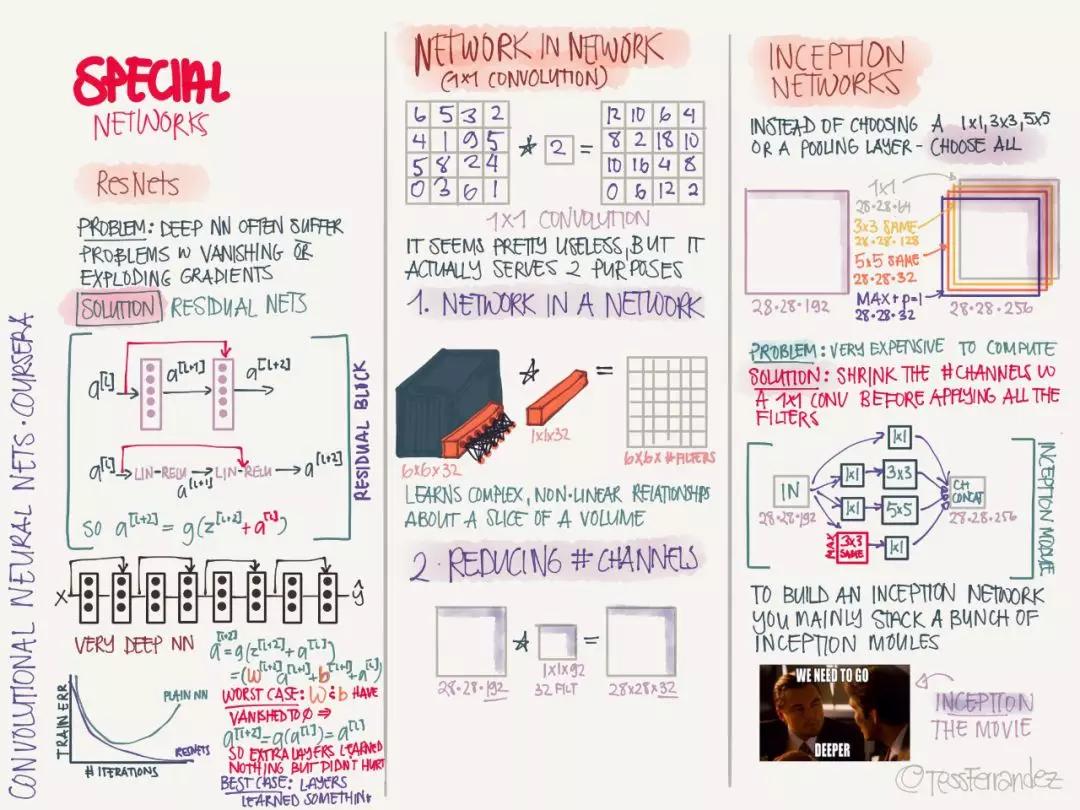 CONVOLUTIONAL NEURAL NETS · COURSERA
SPECIAL
NETWORKS
ResNets
PROBLEM: DEEP NN OFTEN SUFFER
PROBLEMS W VANISHING OR
EXPLODING GRADIENTS
SOLUTION RESIDUAL NETS
a[l] a[l+1] a[l+2]
a[l] LIN-RELU → LIN-RELU → a[l+2]
a[l+1]
SO a[l+2] = g(z[l+2] + a[l])
RESIDUAL BLOCK
X ŷ
VERY DEEP NN
TRAIN ERR
PLAIN NN
RESNETS
# ITERATIONS
a[l+2] = g(z[l+2] + a[l])
=(W[l+2] a[l+1] + b[l+1] + a[l])
WORST CASE: W & b HAVE
VANISHED TO 0 ⇒
a[l+2] = g(a[l]) = a[l]
SO EXTRA LAYERS LEARNED
NOTHING BUT DIDN'T HURT
BEST CASE: LAYERS
LEARNED SOMETHING
NETWORK IN NETWORK
(1x1 CONVOLUTION)
6 5 3 2
4 1 9 5
5 8 2 4
0 3 6 1
* 2 =
12 10 6 4
8 2 18 10
10 16 4 8
0 6 12 2
1x1 CONVOLUTION
IT SEEMS PRETTY USELESS, BUT IT
ACTUALLY SERVES 2 PURPOSES
1. NETWORK IN A NETWORK
* =
6x6x32
1x1x32
6x6x #FILTERS
LEARNS COMPLEX, NON-LINEAR RELATIONSHIPS
ABOUT A SLICE OF A VOLUME
2. REDUCING # CHANNELS
* =
28·28·192
1x1x92
32 FILT
28x28x32
INCEPTION
NETWORKS
INSTEAD OF CHOOSING A 1x1, 3x3, 5x5
OR A POOLING LAYER - CHOOSE ALL
1x1
28·28·64
3x3 SAME
28·28·128
5x5 SAME
28·28·32
MAX + p=1
28·28·32
28·28·192
28·28·256
PROBLEM: VERY EXPENSIVE TO COMPUTE
SOLUTION: SHRINK THE #CHANNELS W
A 1x1 CONV BEFORE APPLYING ALL THE
FILTERS
1x1
IN
28·28·192
1x1
3x3
1x1
5x5
MAX
3x3
SAME
1x1
CH
CONCAT
28·28·256
INCEPTION MODULE
TO BUILD AN INCEPTION NETWORK
YOU MAINLY STACK A BUNCH OF
INCEPTION MOULES
WE NEED TO GO
DEEPER
INCEPTION
THE MOVIE
@TessFerrandez